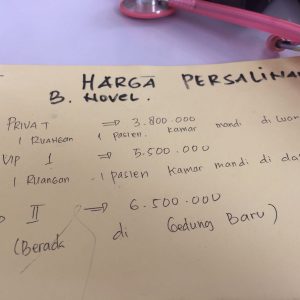 HARGA PERSALINAN
B. NOVEL.
PRIVAT => 3.800.000
1 RUANGAN 1 pasien. kamar mandi di luar
VIP 1 => 5.500.000
1 Ruangan 1 pasien kamar mandi di da
II => 6.500.000
(Berada di Gedung Baru)